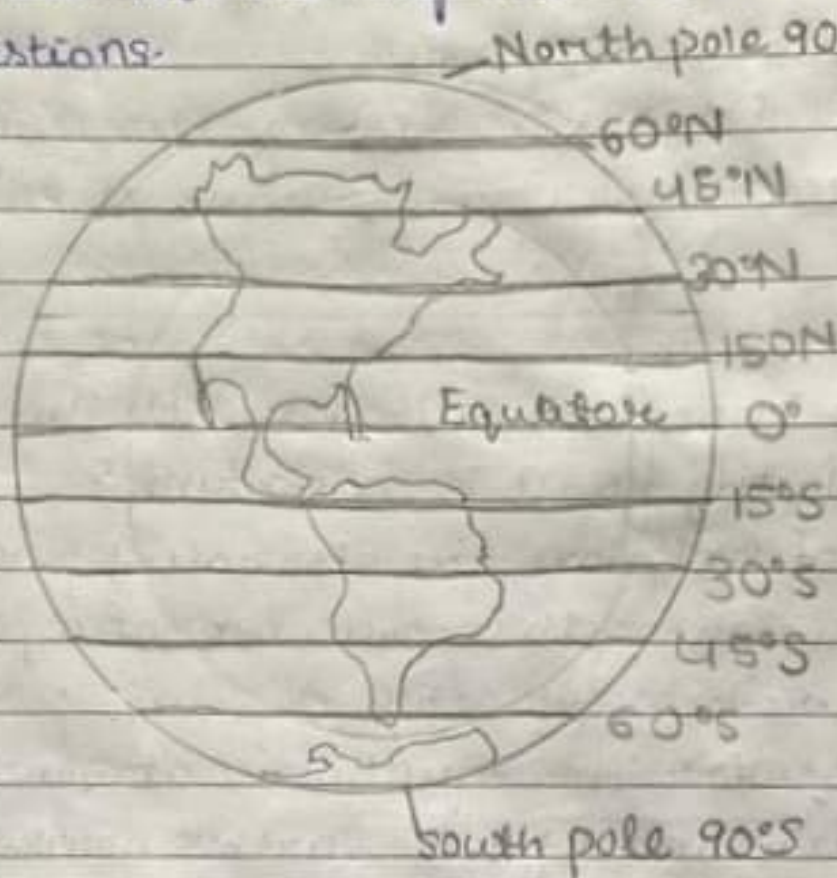 stions.
North pole 90
60°N
45°N
30°N
150N
Equatore
0°
15°S
30°S
45°S
60°S
south pole 90°S